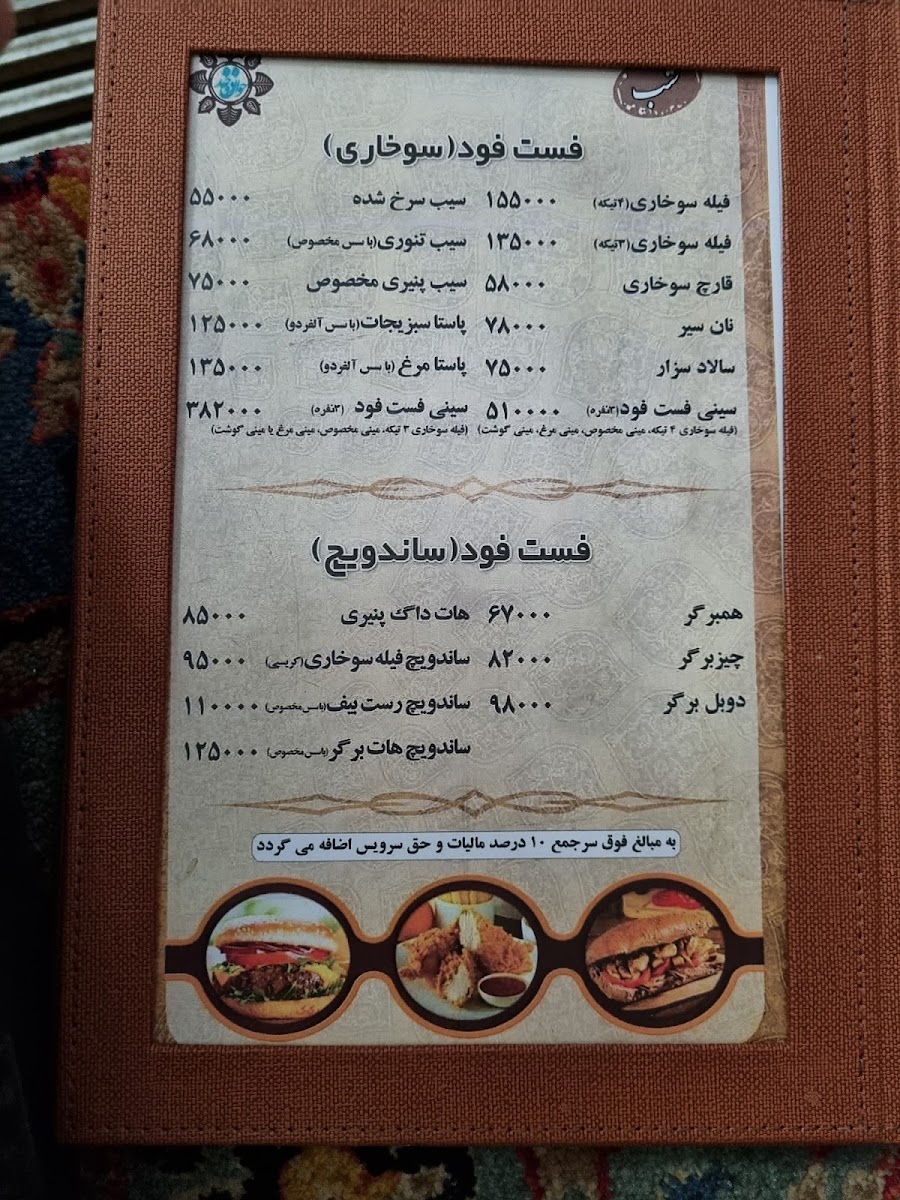 شب
فست فود(سوخاری)
فیله سوخاری(۴تیکه) ۱۵۵۰۰۰ سیب سرخ شده ۵۵۰۰۰
فیله سوخاری(۳تیکه) ۱۳۵۰۰۰ سیب تنوری(با سس مخصوص) ۶۸۰۰۰
قارچ سوخاری ۵۸۰۰۰ سیب پنیری مخصوص ۷۵۰۰۰
نان سیر ۷۸۰۰۰ پاستا سبزیجات(با سس آلفردو) ۱۲۵۰۰۰
سالاد سزار ۷۵۰۰۰ پاستا مرغ (با سس آلفردو) ۱۳۵۰۰۰
سینی فست فود(۳نفره) ۵۱۰۰۰۰ سینی فست فود (۳نفره) ۳۸۲۰۰۰
(فیله سوخاری ۴ تیکه، مینی مخصوص، مینی مرغ، مینی گوشت) (فیله سوخاری ۳ تیکه، مینی مخصوص، مینی مرغ یا مینی گوشت)
فست فود(ساندویچ)
همبرگر ۶۷۰۰۰ هات داگ پنیری ۸۵۰۰۰
چیزبرگر ۸۲۰۰۰ ساندویچ فیله سوخاری(کریسپی) ۹۵۰۰۰
دوبل برگر ۹۸۰۰۰ ساندویچ رست بیف(باسس مخصوص) ۱۱۰۰۰۰
ساندویچ هات برگر(باسس مخصوص) ۱۲۵۰۰۰
به مبالغ فوق سرجمع ۱۰ درصد مالیات و حق سرویس اضافه می گردد